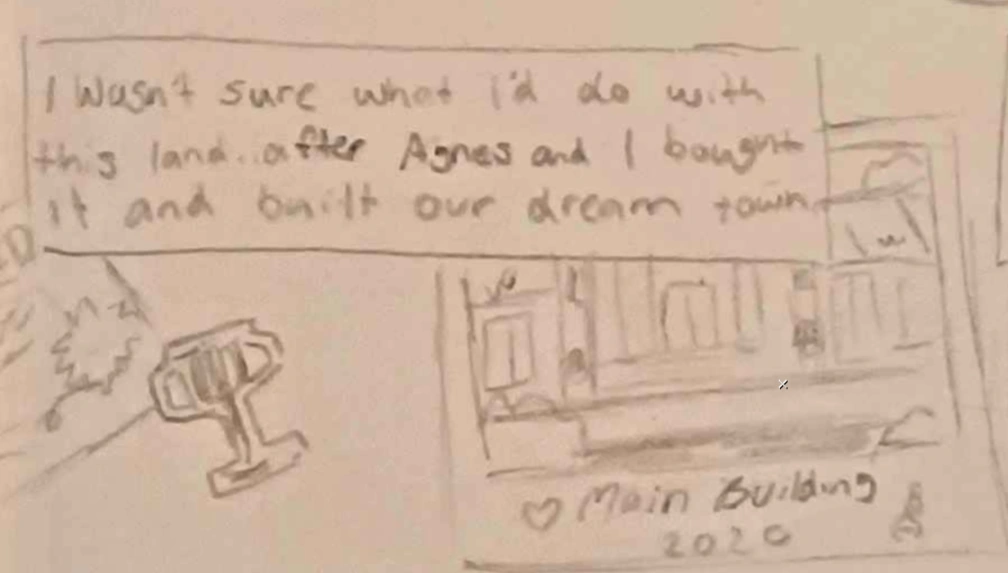 I Wasn't sure what I'd do with
this land..after Agnes and I bought
it and built our dream town.
♡ Main Building
2020